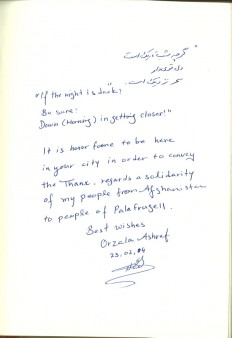 گرچه شب تاریک است
دل قوی دار
سحر نزدیک است
"If the night is dark,
Be sure:
Dawn (Morning) in getting closer!"
It is honor fome to be here
in your city in order to convey
the Thanx, regards a solidarity
of my people from Afghanistan
to people of Palafrugell.
Best wishes
Orzala Ashraf
23,02,04